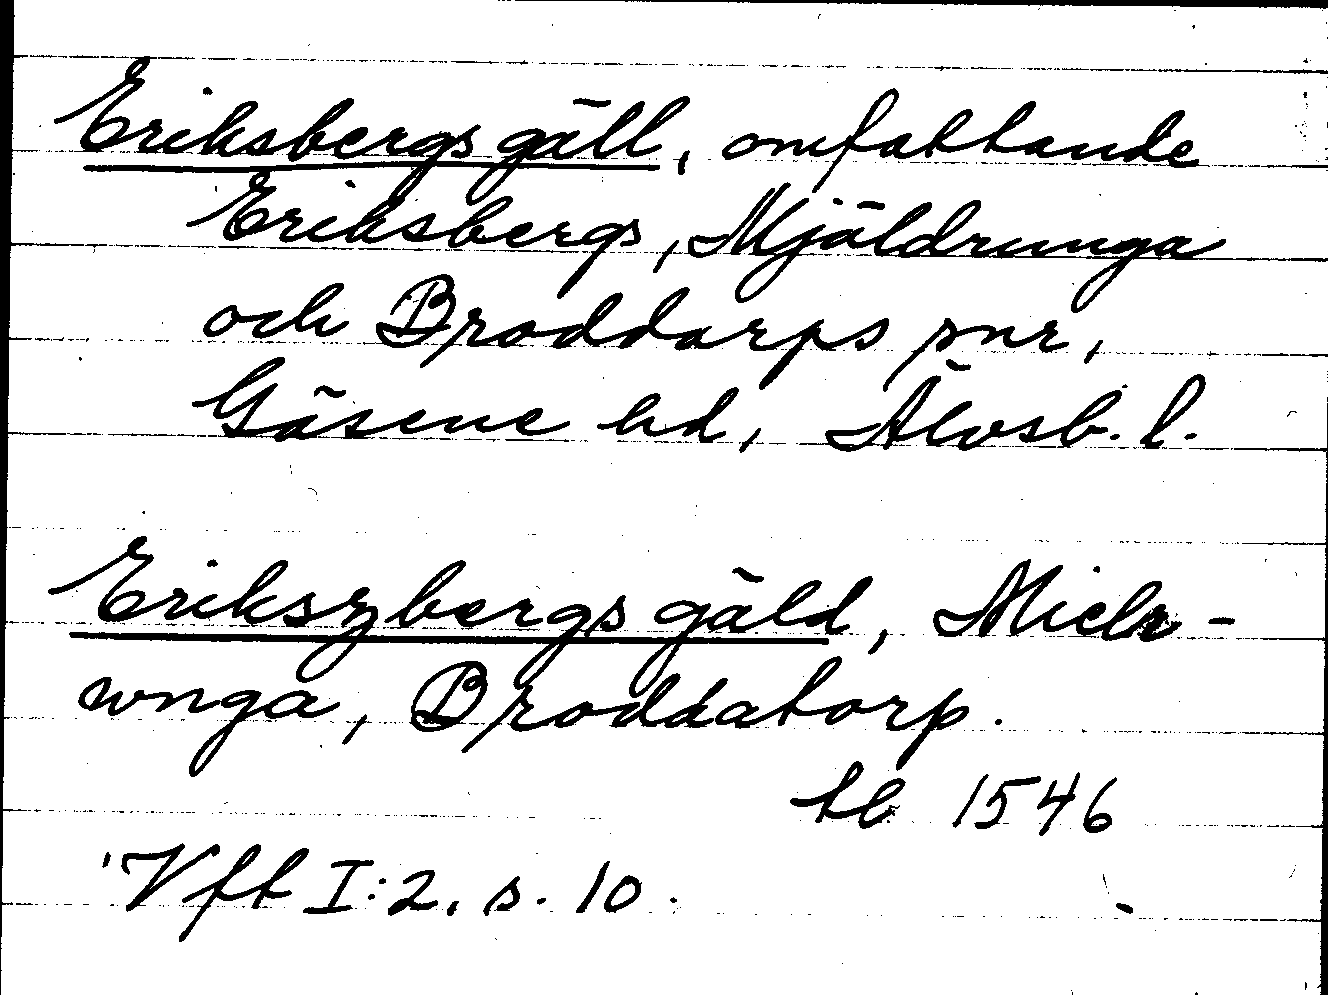 Eriksbergs gäll, omfattande
Eriksbergs, Mjäldrunga
och Broddarps snr,
Gäsene hd, Älvsb. l.
Erikszbergs gäld, Mielr-
wnga, Broddatorp.
tl 1546
Vft I:2, s. 10.